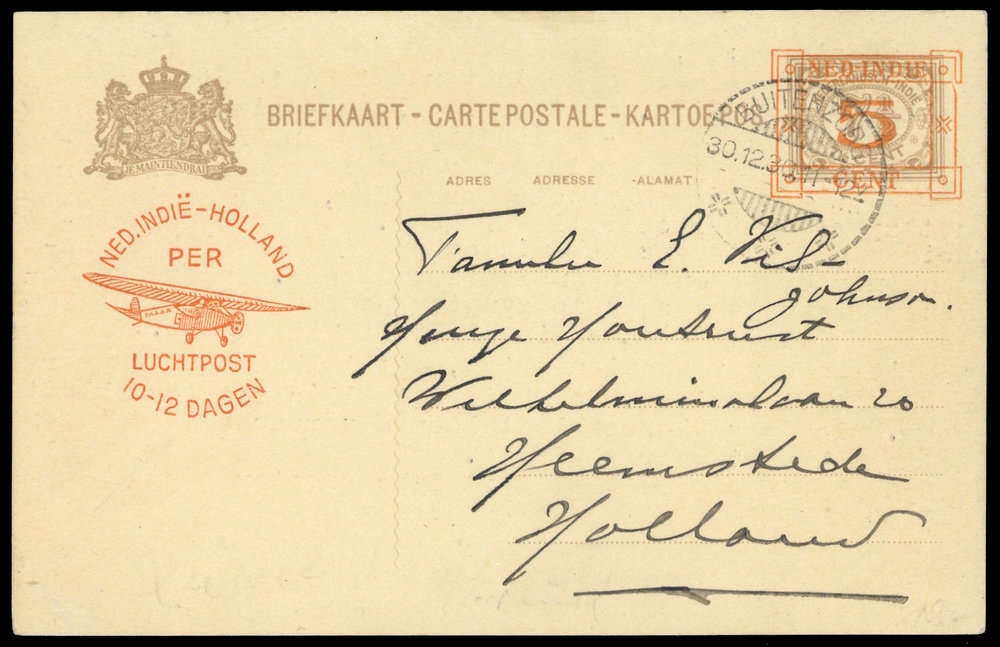 BRIEFKAART - CARTE POSTALE - KARTOEPOS
NED. INDIE
5
CENT
JE MAINTIENDRAI
BUITENZ
30.12.3
ADRES ADRESSE ALAMAT
NED. INDIË - HOLLAND
PER
LUCHTPOST
10-12 DAGEN
Familie E. Vis-
Johnson.
Huize Houtrust
Wilhelminalaan 20
Heemstede
Holland